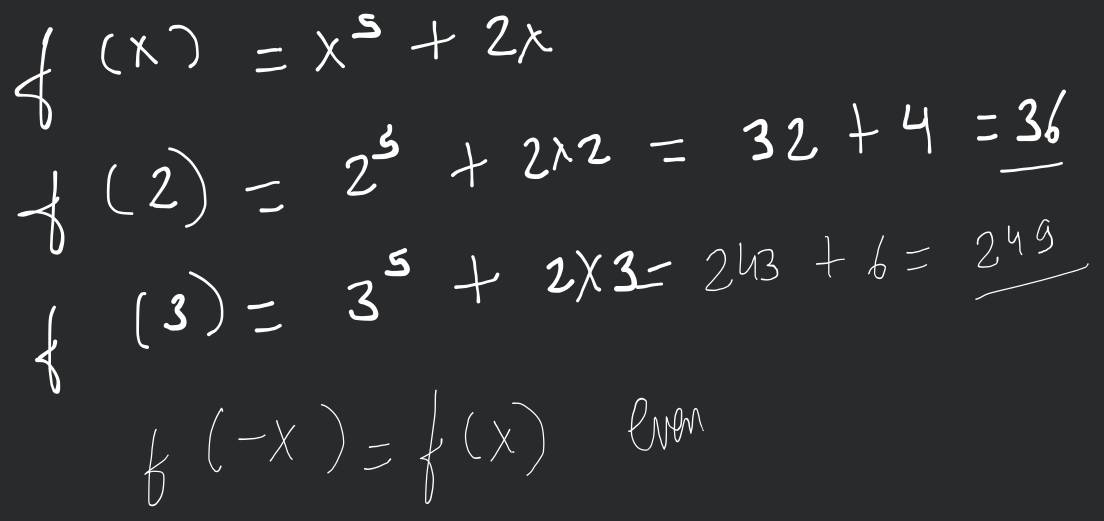 f(x) = x⁵ + 2x
f(2) = 2⁵ + 2x2 = 32 + 4 = 36
f(3) = 3⁵ + 2x3 = 243 + 6 = 249
f(-x) = f(x) even